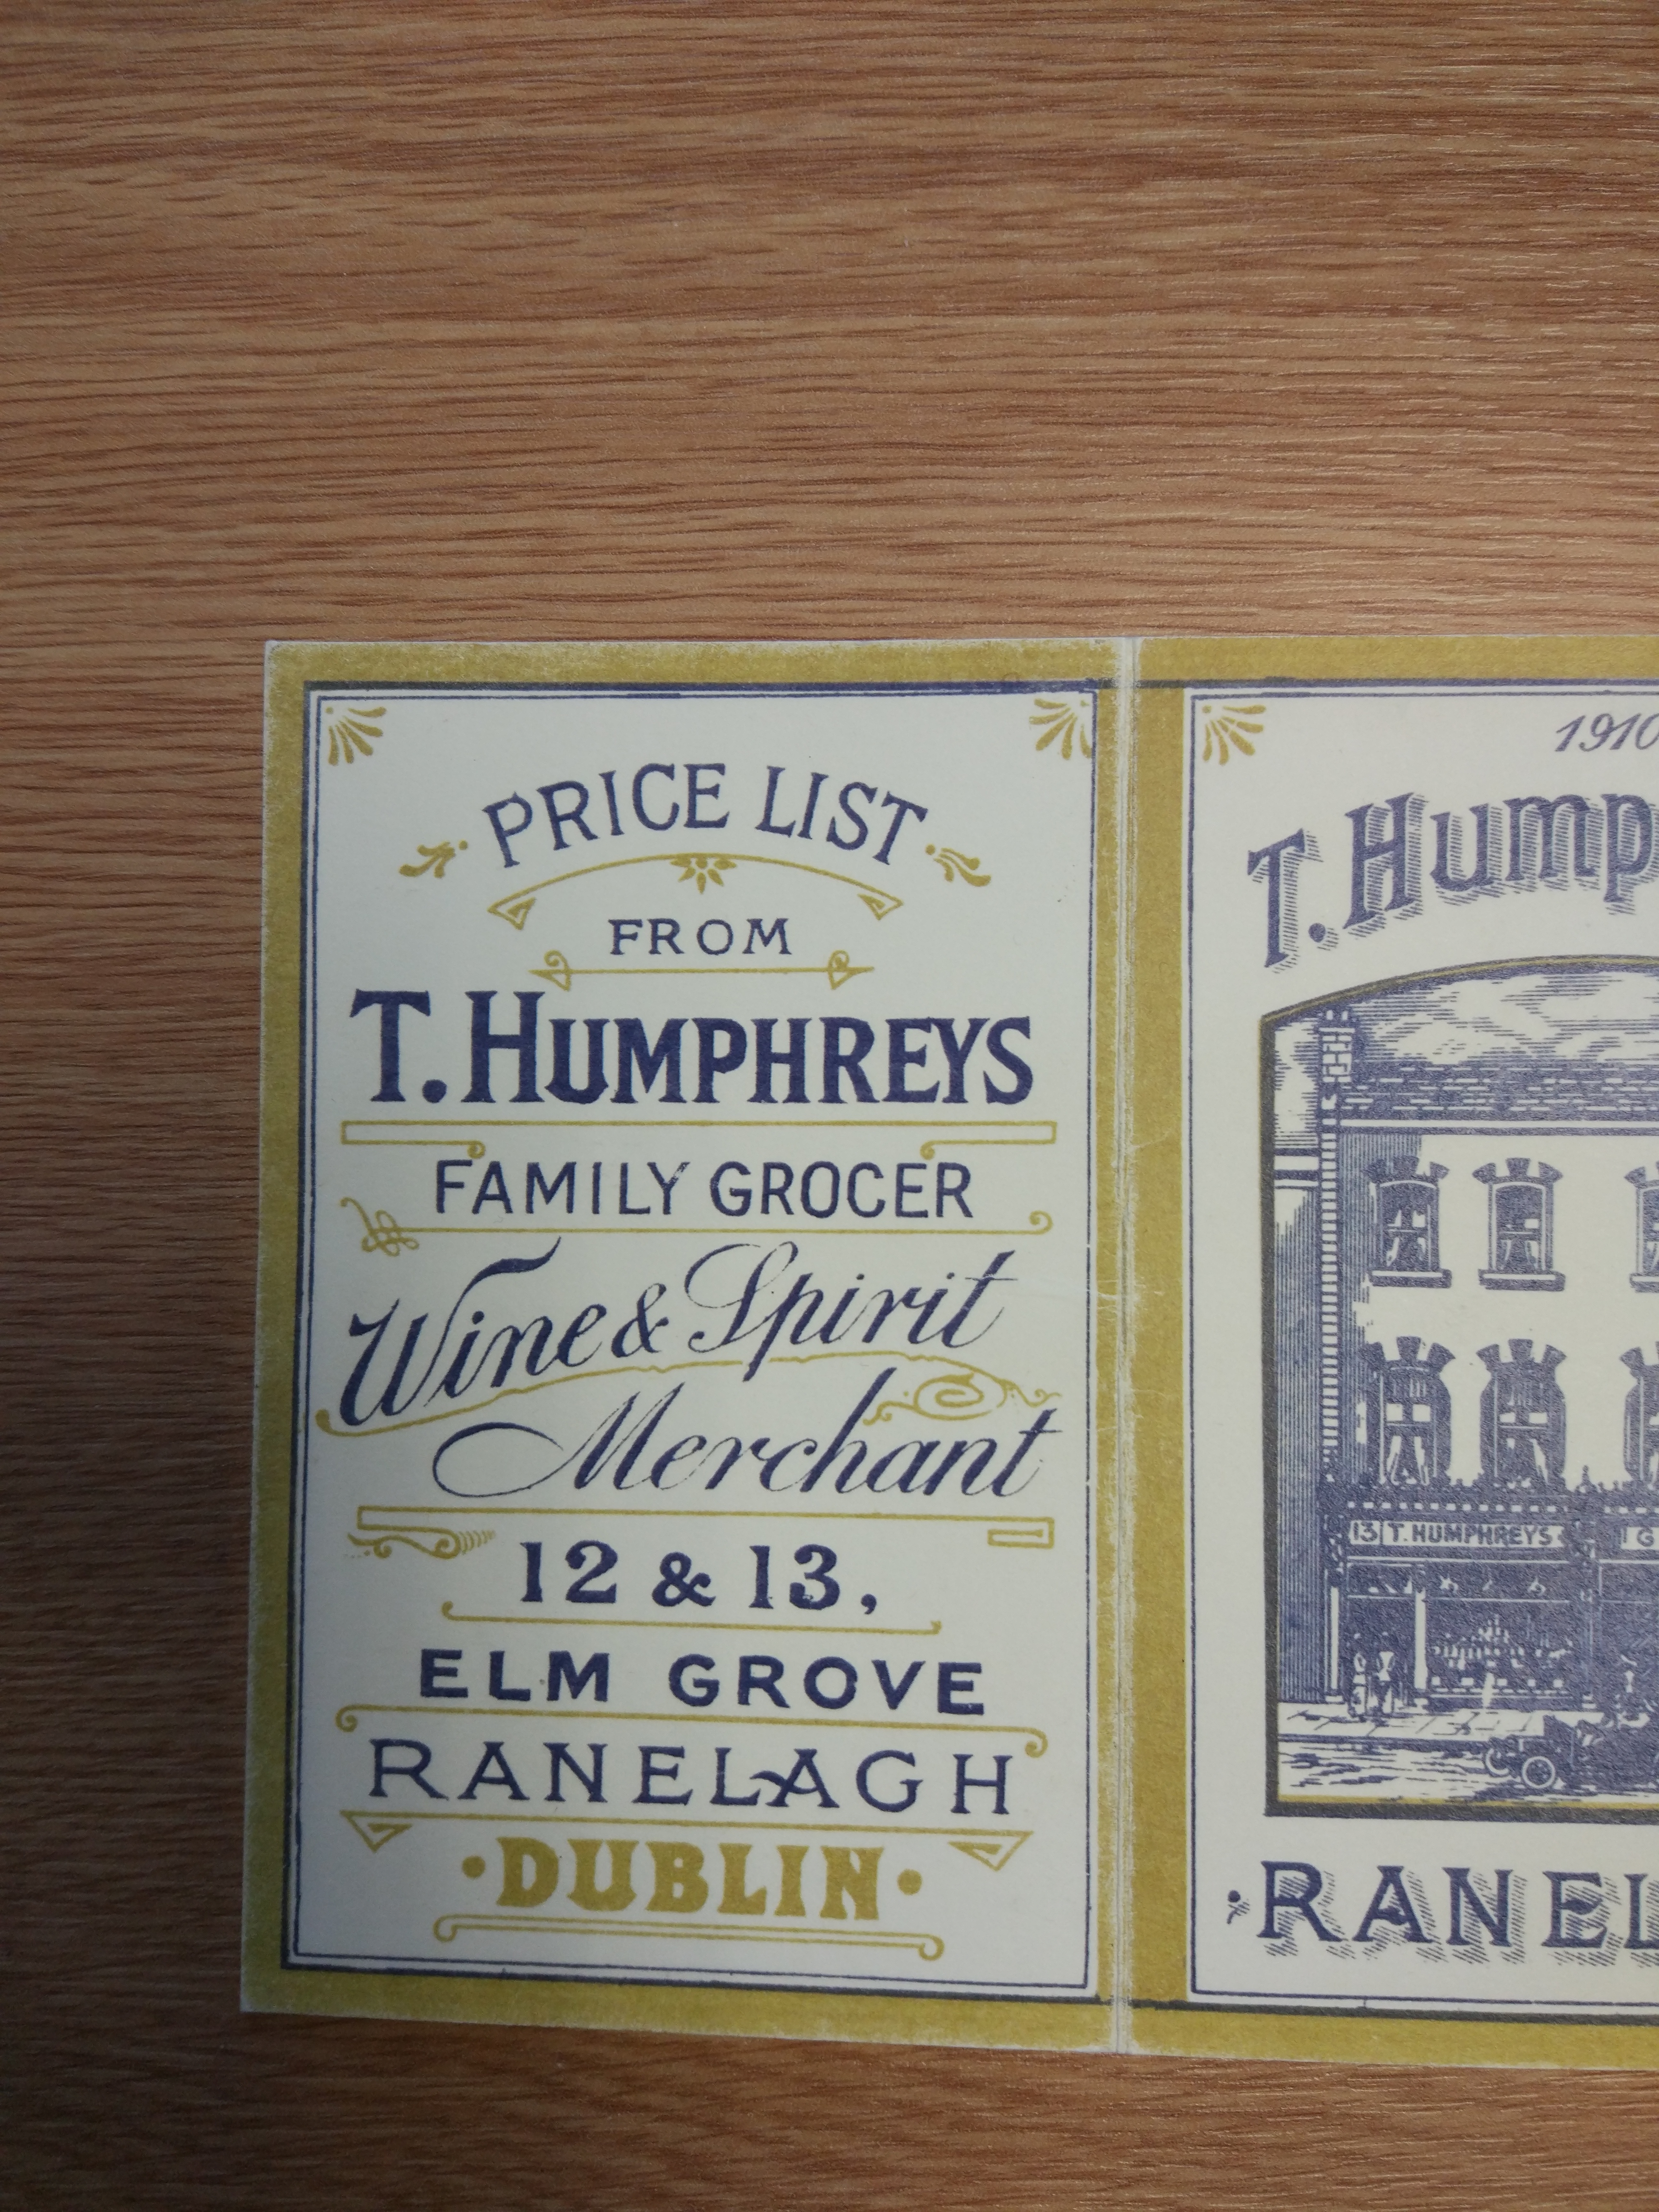 PRICE LIST
FROM
T. HUMPHREYS
FAMILY GROCER
Wine & Spirit
Merchant
12 & 13,
ELM GROVE
RANELAGH
·DUBLIN·
1910
T. Hump
13 T. HUMPHREYS
G
·RANEL